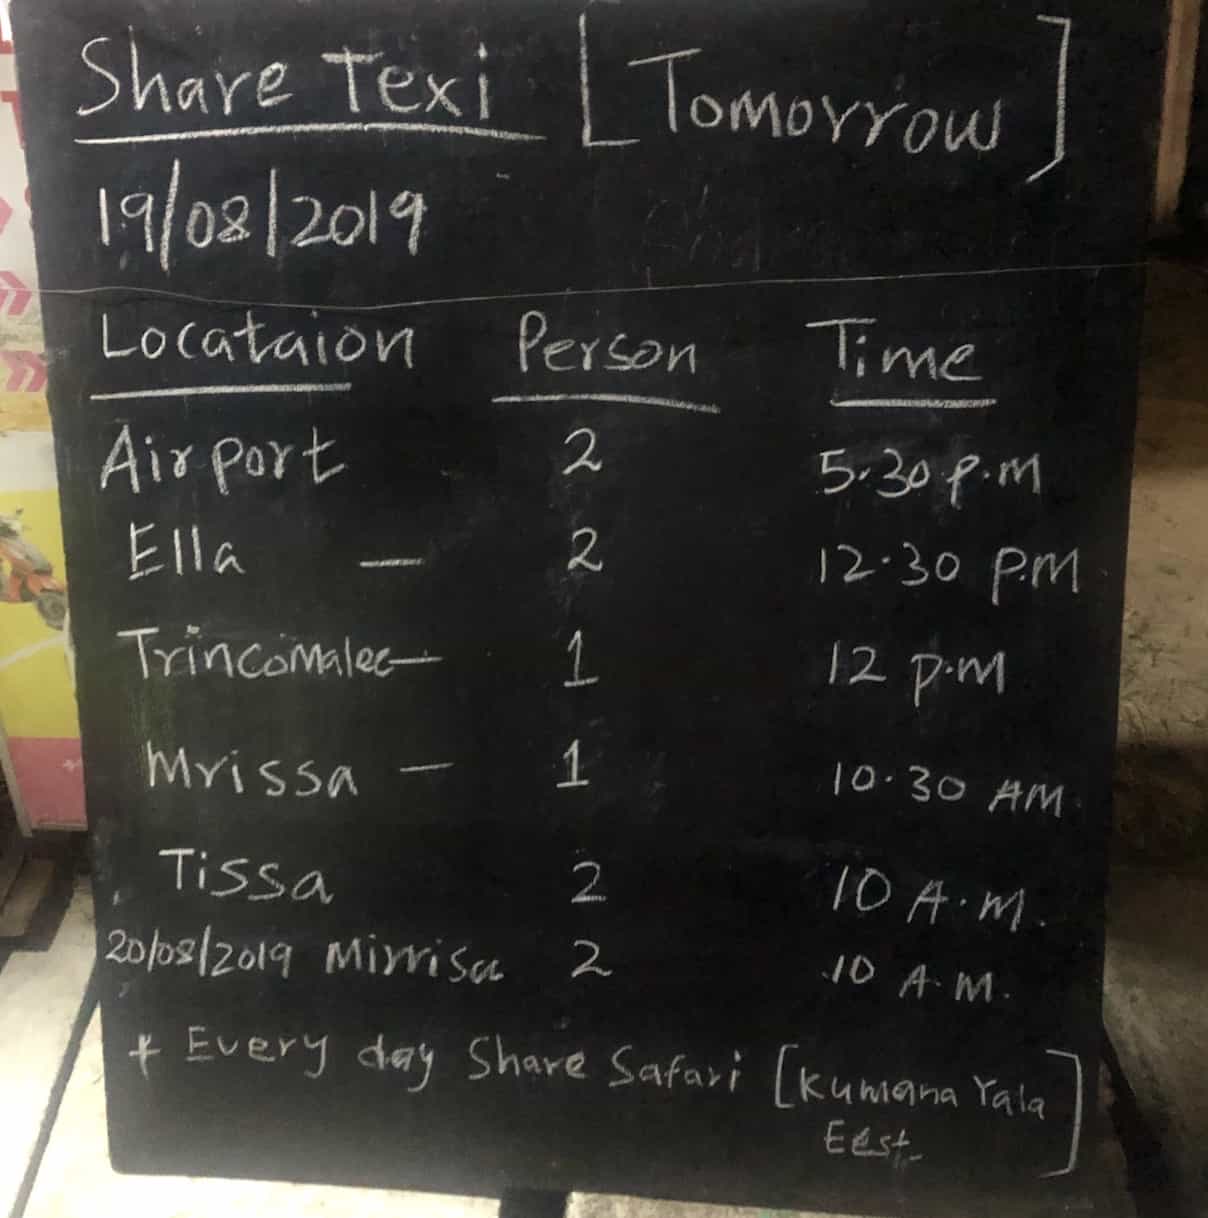 Share Texi [Tomorrow]
19/08/2019
Locataion Person Time
Airport 2 5.30 p.m
Ella — 2 12.30 p.m
Trincomalee — 1 12 p.m
Mrissa — 1 10.30 AM
Tissa 2 10 A.M.
20/08/2019 Mirrisa 2 10 A.M.
+ Every day Share Safari [Kumana Yala
Eest]